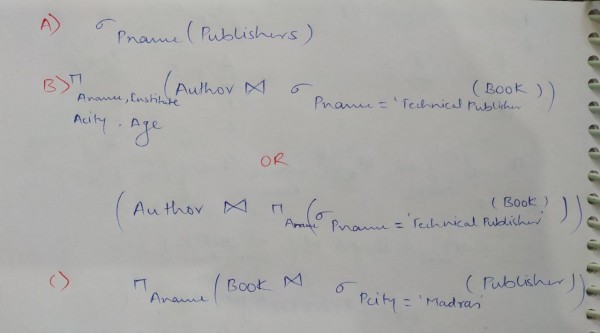 A) σ Pname (Publishers)
B) π Aname, Institute, Acity, Age (Author ⋈ σ Pname = 'Technical Publisher (Book))
OR
(Author ⋈ π Aname (σ Pname = 'Technical Publisher' (Book)))
C) π Aname (Book ⋈ σ Pcity = 'Madras' (Publisher))